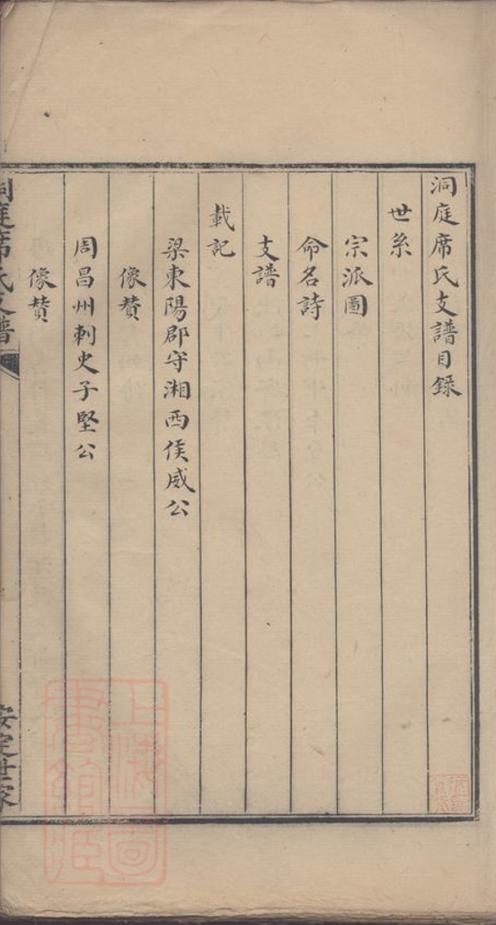 洞庭席氏支譜目錄
世系
宗派圖
命名詩
支譜
載記
梁東陽郡守湘西侯威公
像贊
周昌州刺史子堅公
像贊
洞庭席氏支譜
安定世家
上海圖書館藏